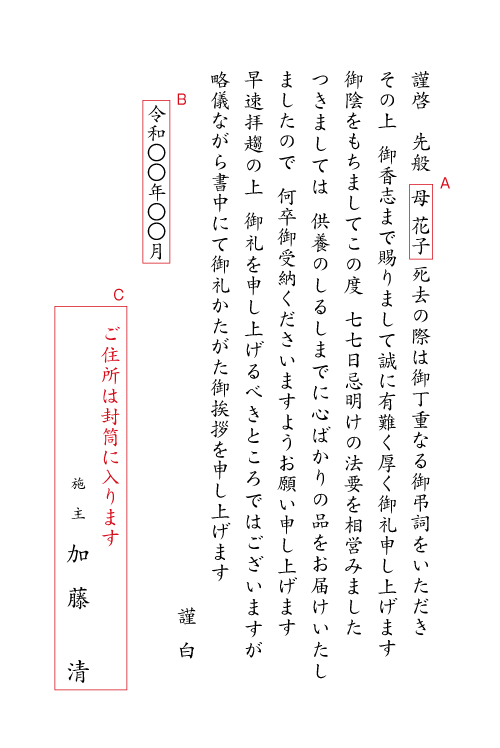 謹啓　先般　母 花子　死去の際は御丁重なる御弔詞をいただき
A
その上　御香志まで賜りまして誠に有難く厚く御礼申し上げます
御陰をもちましてこの度　七七日忌明けの法要を相営みました
つきましては　供養のしるしまでに心ばかりの品をお届けいたし
ましたので　何卒御受納くださいますようお願い申し上げます
早速拝趨の上　御礼を申し上げるべきところではございますが
略儀ながら書中にて御礼かたがた御挨拶を申し上げます
謹白
B
令和〇〇年〇〇月
C
ご住所は封筒に入ります
施主　加藤　清